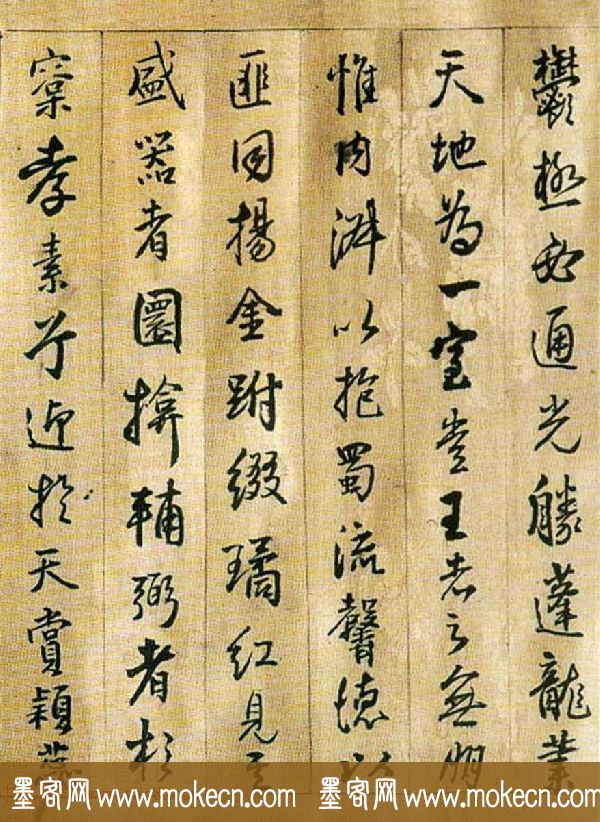 鬱極必通光勝蓬龍業
天地為一室堂王者之無
惟肉澥以抱蜀流馨德
匪同揚金跗綴璚紅見
盛器者園揜輔弼者杉
寮孝素兮迎於天賞穎
墨客网 www.mokecn.com 墨客网 www.mokecn.com